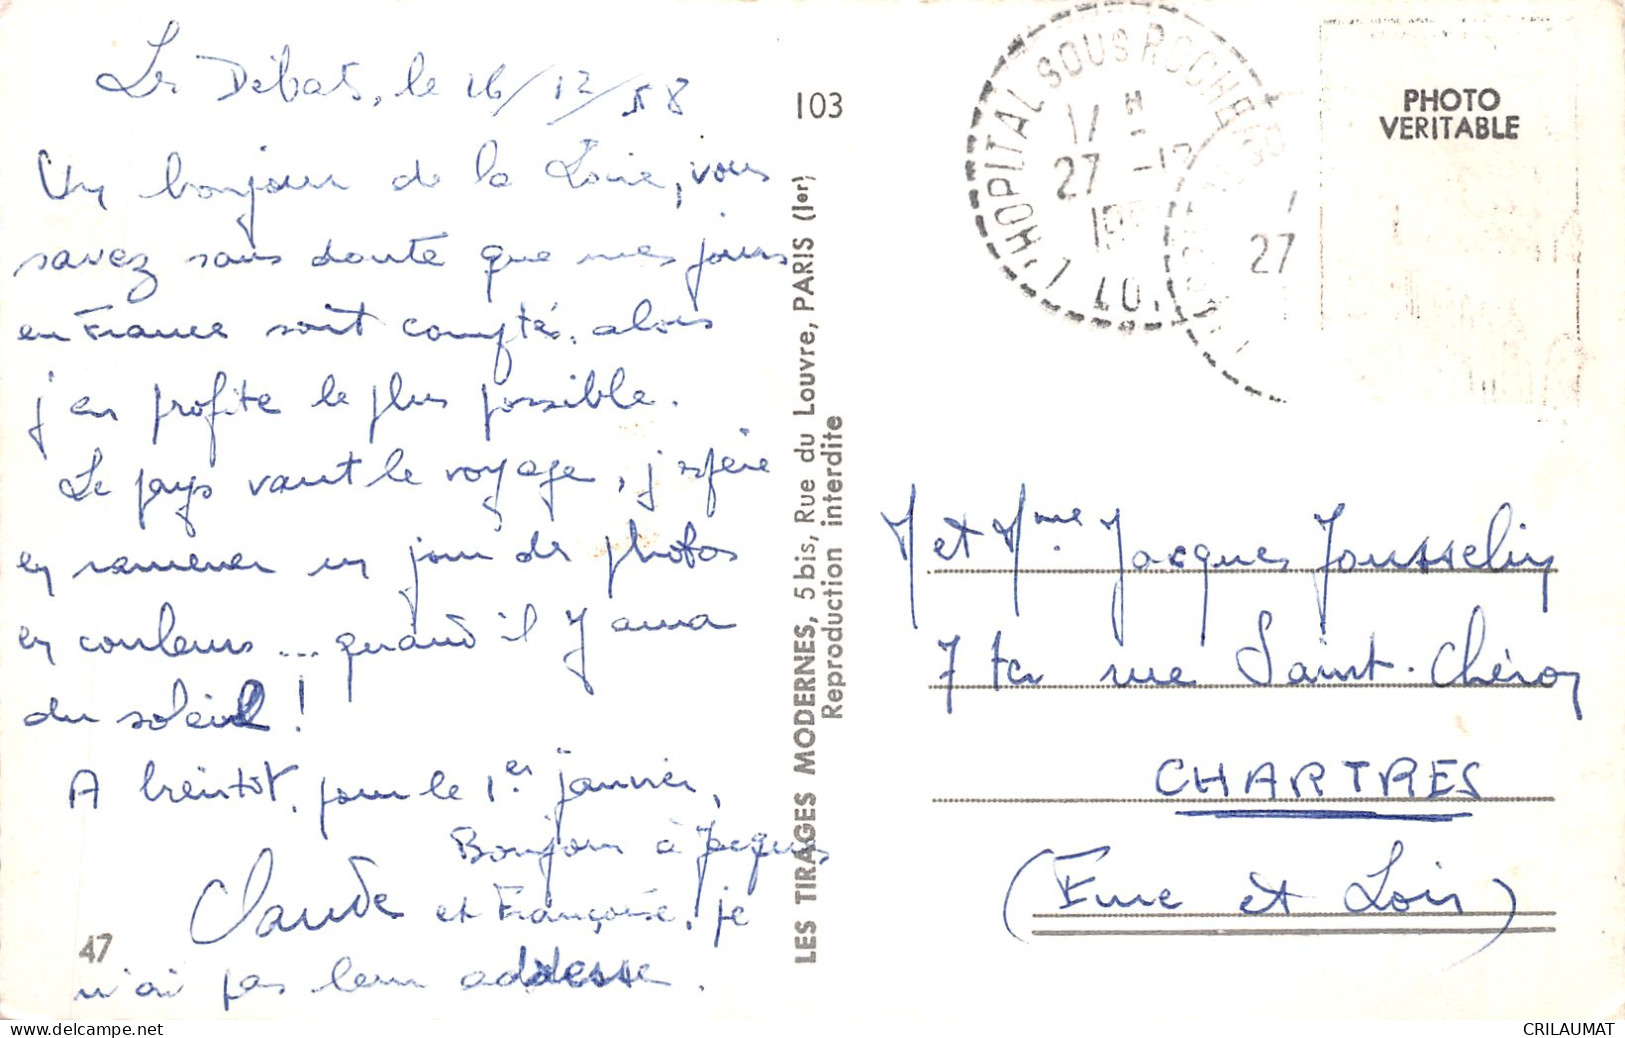 Les Débats, le 26/12/58
Un bonjour de la Loire, vous
savez sans doute que mes jours
en France sont comptés, alors
j'en profite le plus possible.
Le pays vaut le voyage, j'espère
en ramener un jour des photos
en couleurs ... quand il y aura
du soleil !
A bientôt, pour le 1er janvier,
Bonjour à Jacques
Claude et Françoise, je
n'ai pas leur adresse.
47
103
LES TIRAGES MODERNES, 5 bis, Rue du Louvre, PARIS (Ier)
Reproduction interdite
L'HOPITAL SOUS ROCHEFO
17 H
27 -12
195
LOI
27
PHOTO
VERITABLE
M et Mme Jacques Jousselin
7 ter rue Saint-Chéron
CHARTRES
(Eure et Loir)
www.delcampe.net
CRILAUMAT